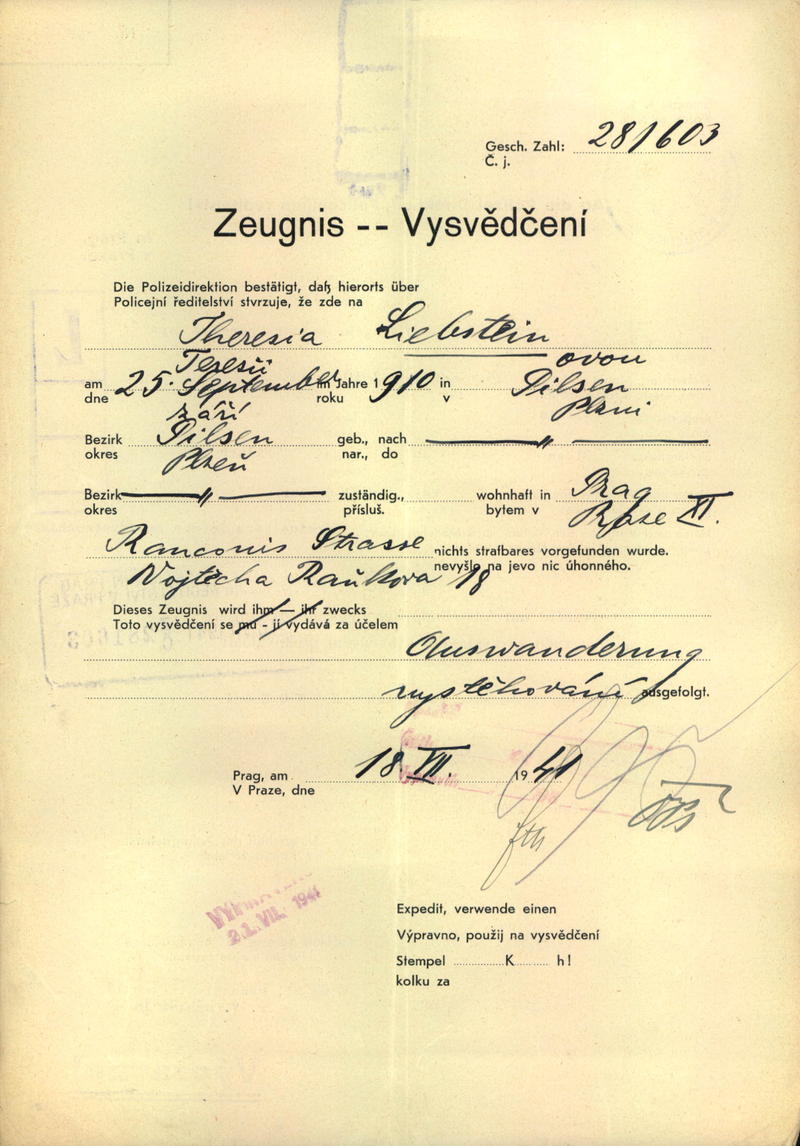 Gesch. Zahl: 281603
Č. j.
Zeugnis -- Vysvědčení
Die Polizeidirektion bestätigt, daß hierorts über
Policejní ředitelství stvrzuje, že zde na
Theresia Liebstein
Terezii ovou
am 25. September im Jahre 1910 in Pilsen
dne září roku v Plzni
Bezirk Pilsen geb., nach
okres Plzeň nar., do
Bezirk zuständig., wohnhaft in Prag
okres přísluš. bytem v Praze XI.
Ranconis Strasse nichts strafbares vorgefunden wurde.
Vojtěcha Raňkova 18 nevyšlo na jevo nic úhonného.
Dieses Zeugnis wird ihm — ihr zwecks
Toto vysvědčení se mu - jí vydává za účelem
Auswanderung
vystěhování ausgefolgt.
Prag, am 18. VII. 1941
V Praze, dne
21. VII. 1941
Expedit, verwende einen
Výpravno, použij na vysvědčení
Stempel K h!
kolku za